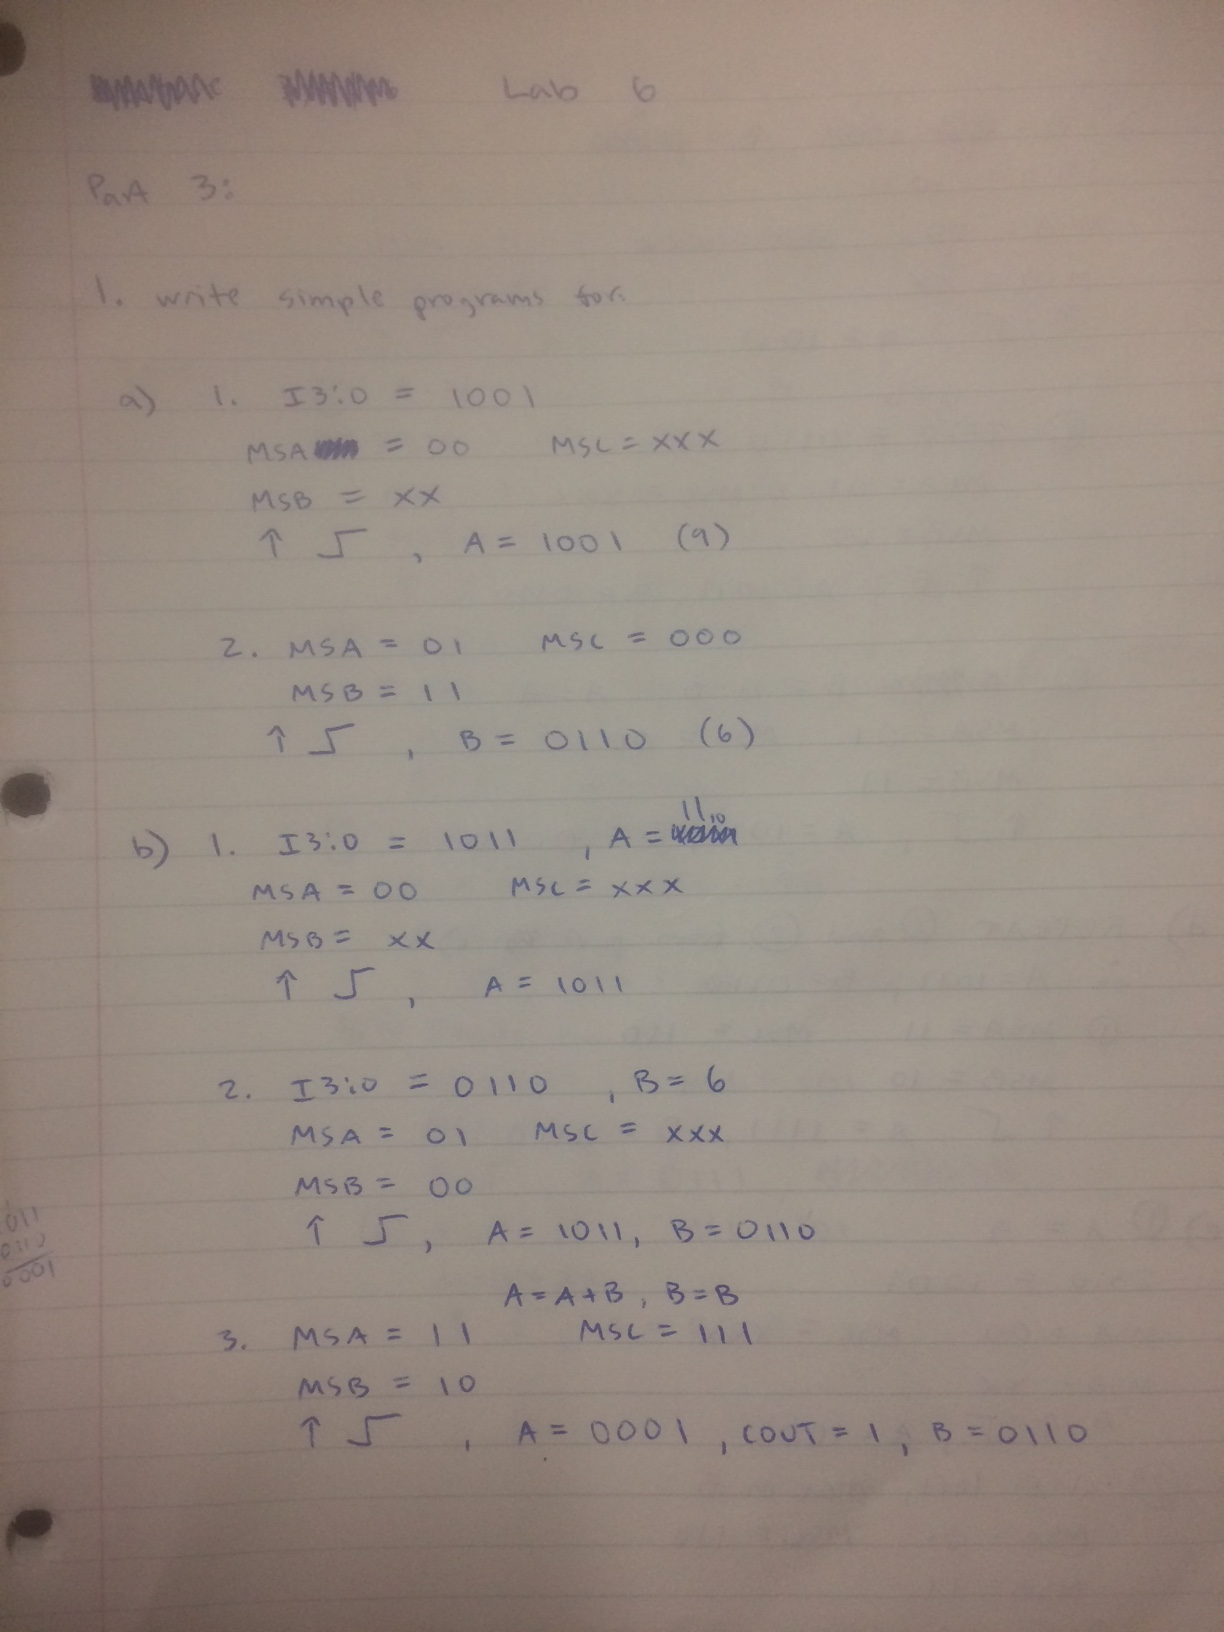 Lab 6
Part 3:
1. write simple programs for:
a) 1. I3:0 = 1001
MSA = 00 MSC = XXX
MSB = XX
↑ , A = 1001 (9)
2. MSA = 01 MSC = 000
MSB = 11
↑ , B = 0110 (6)
b) 1. I3:0 = 1011 , A = 11₁₀
MSA = 00 MSC = XXX
MSB = XX
↑ , A = 1011
2. I3:0 = 0110 , B = 6
MSA = 01 MSC = XXX
MSB = 00
↑ , A = 1011, B = 0110
A = A + B , B = B
3. MSA = 11 MSC = 111
MSB = 10
↑ , A = 0001 , COUT = 1 , B = 0110